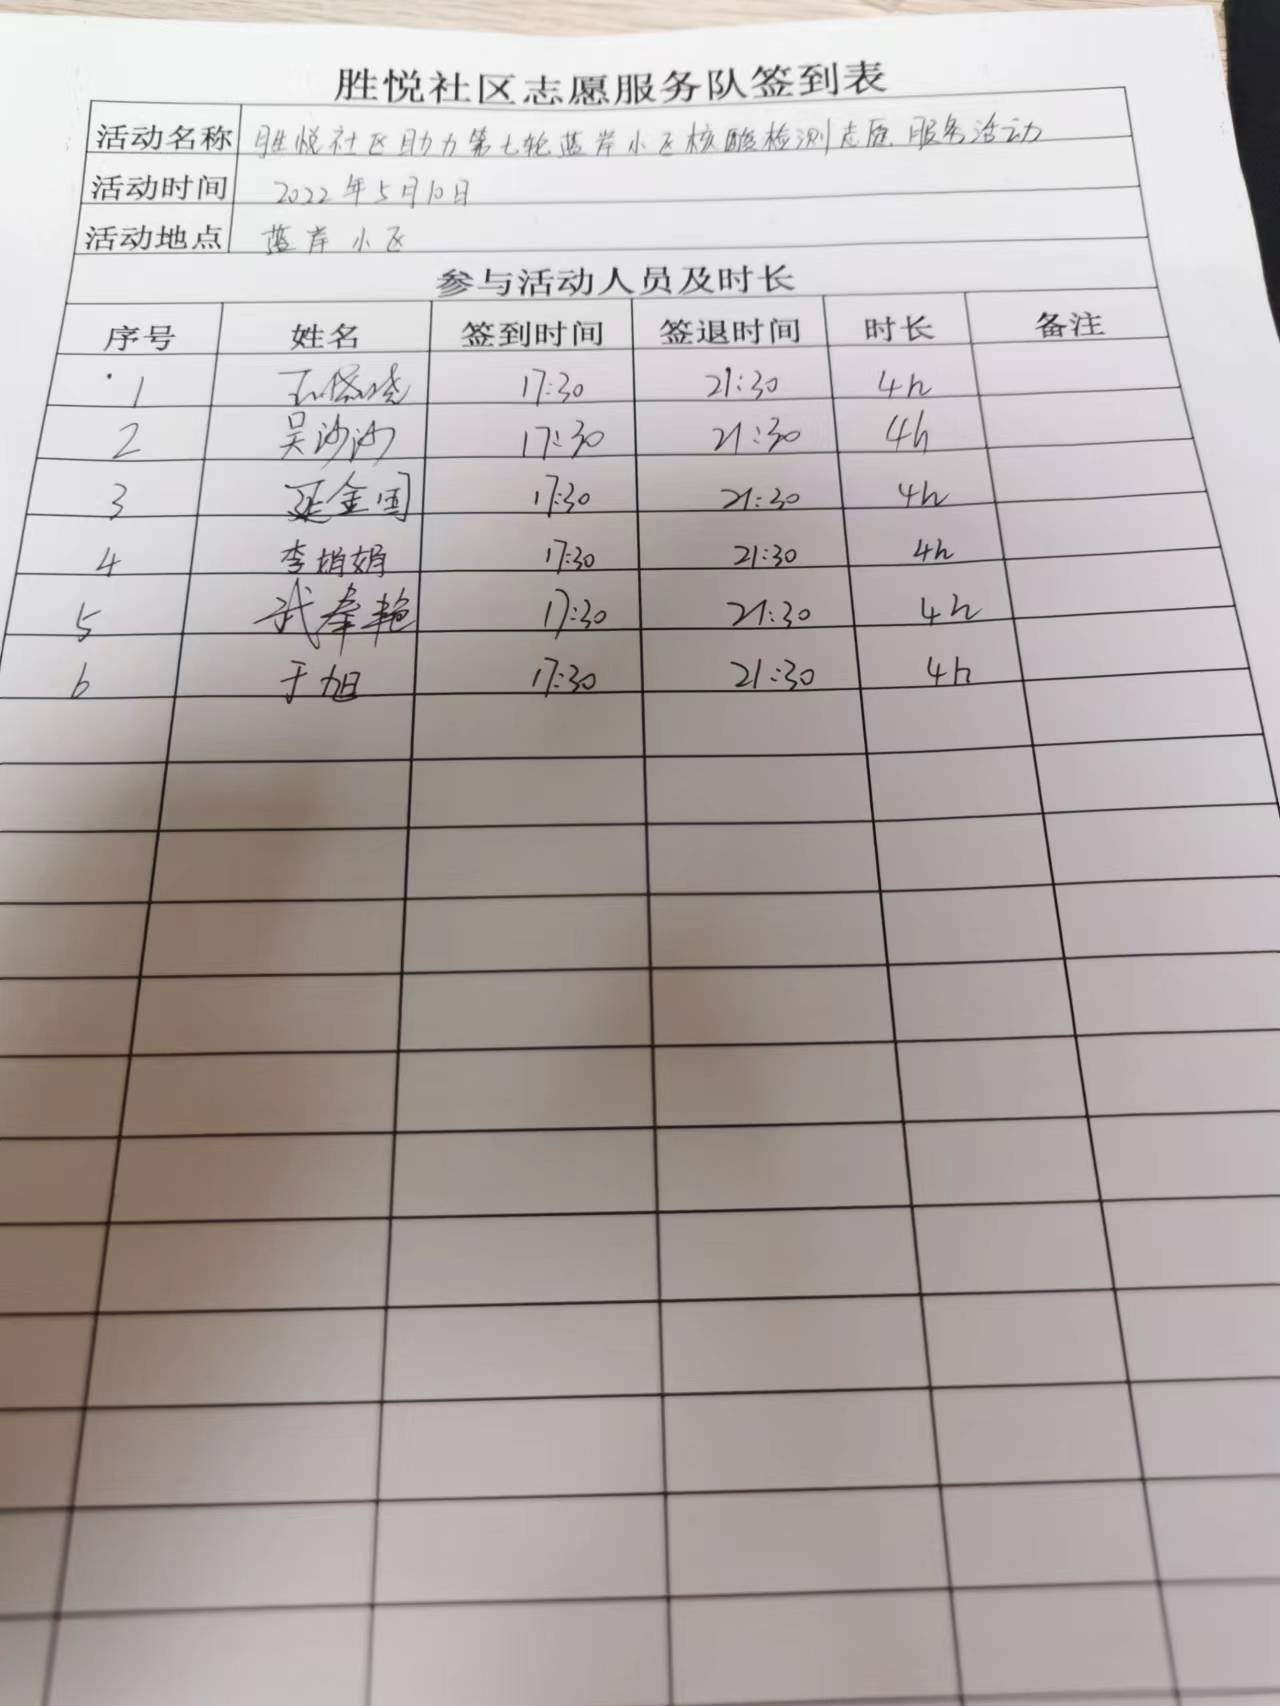 胜悦社区志愿服务队签到表
活动名称 胜悦社区助力第七轮蓝岸小区核酸检测志愿服务活动
活动时间 2022年5月10日
活动地点 蓝岸小区
参与活动人员及时长
序号 姓名 签到时间 签退时间 时长 备注
1 17:30 21:30 4h
2 吴沙沙 17:30 21:30 4h
3 延金国 17:30 21:30 4h
4 李娟娟 17:30 21:30 4h
5 武春艳 17:30 21:30 4h
6 于旭 17:30 21:30 4h